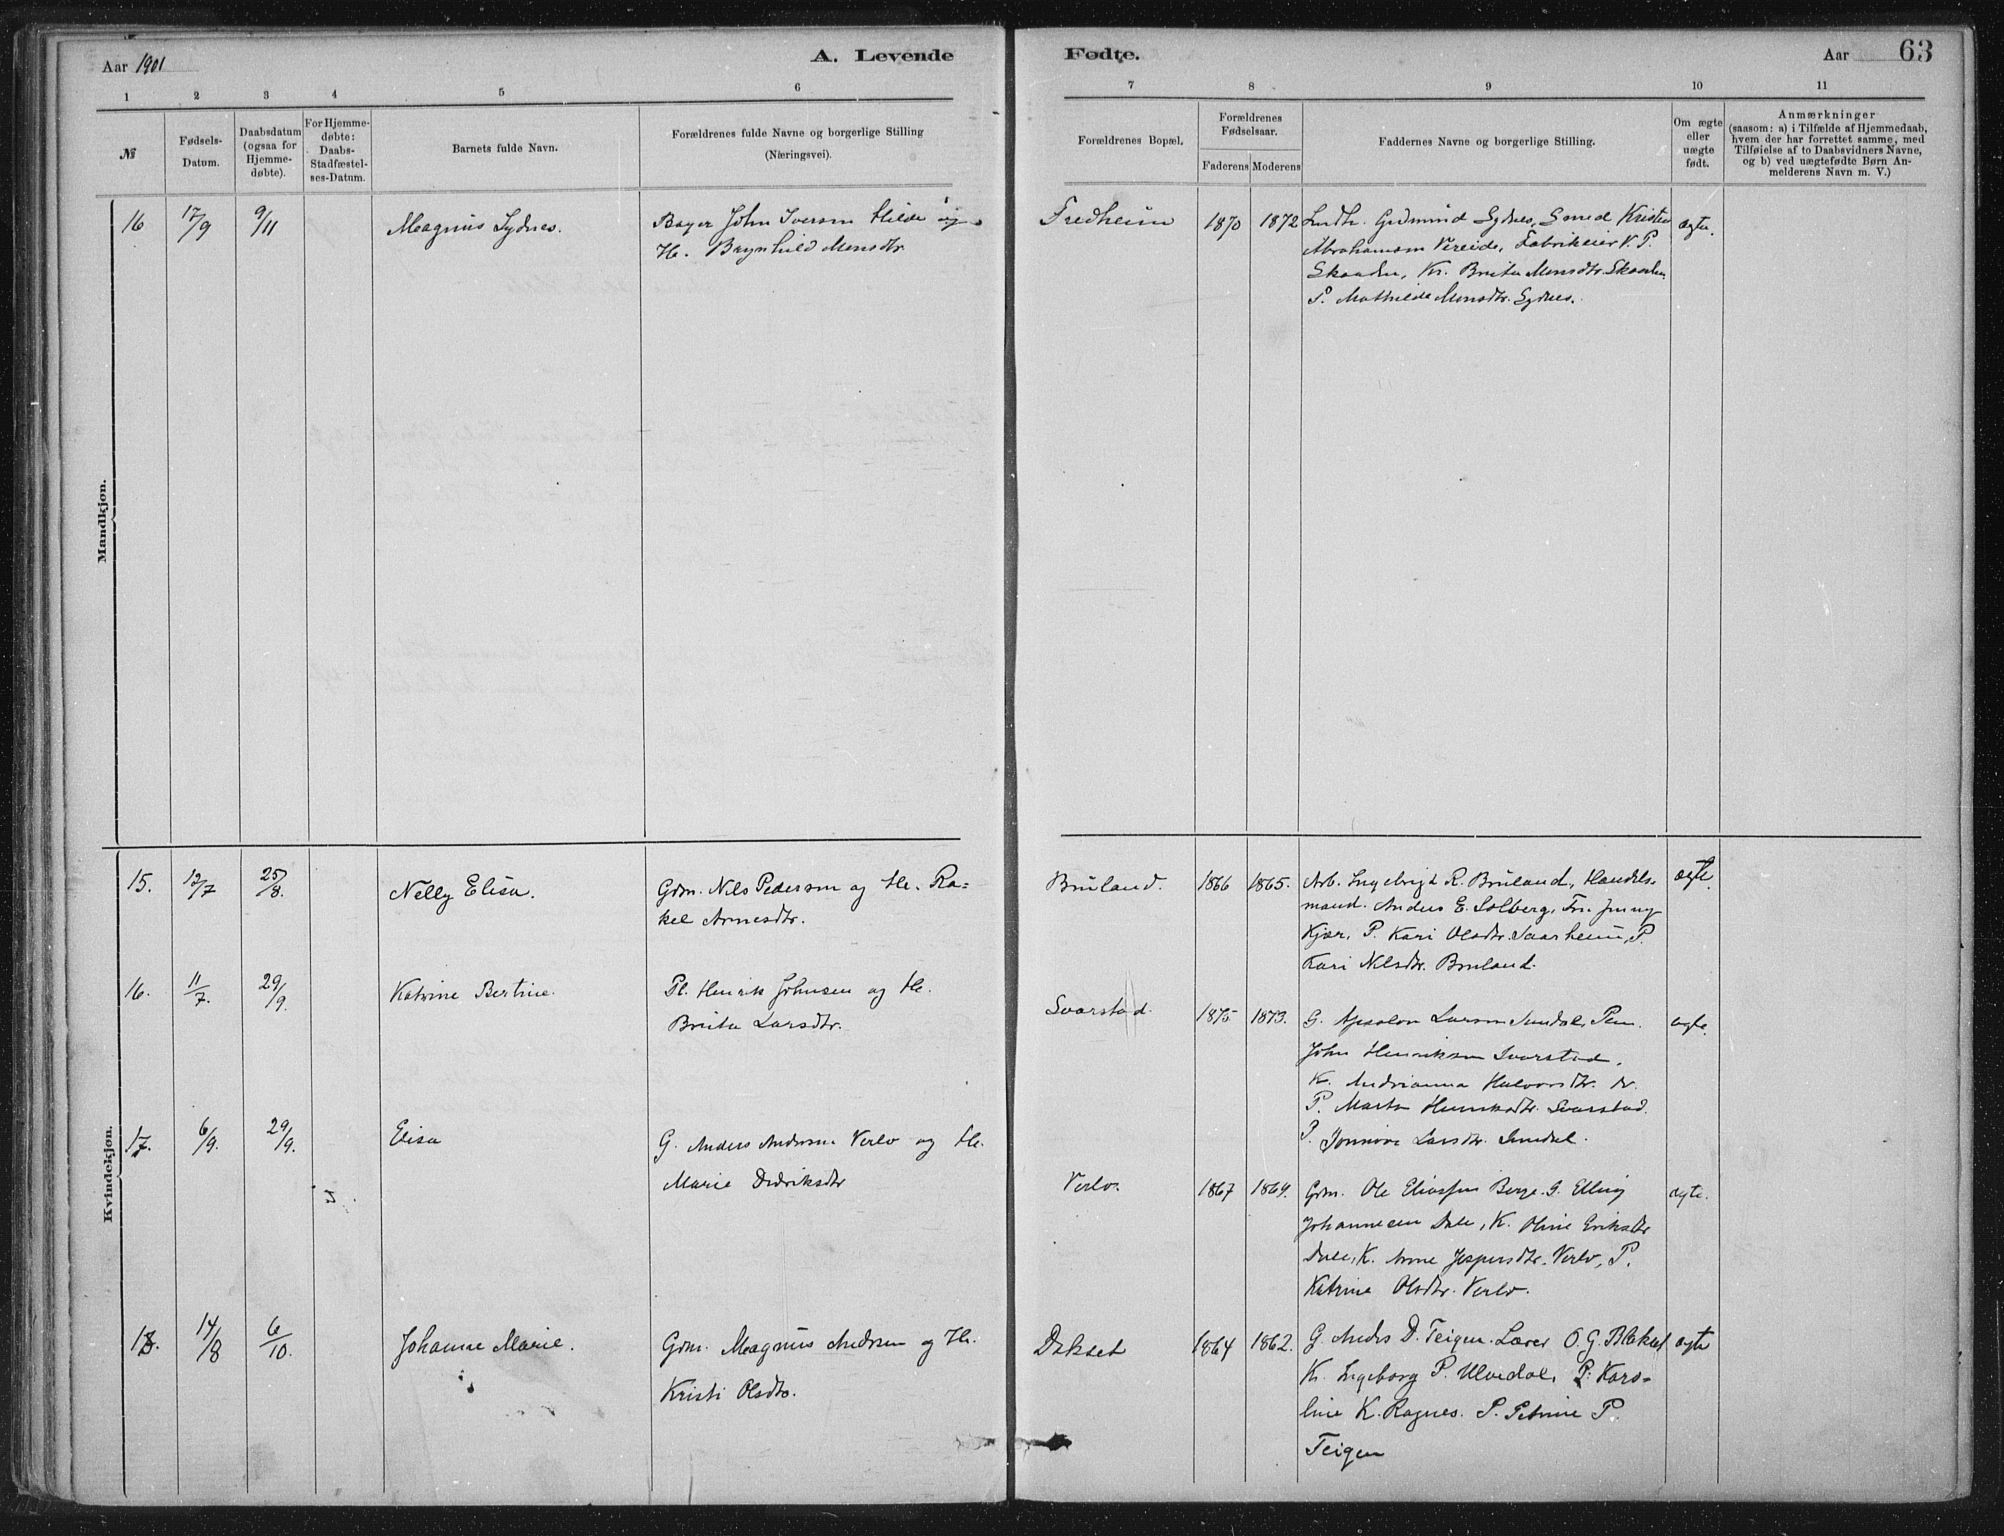 Aar 1901
A. Levende
Fødte.
Aar
63
1 2 3 4 5 6 7 8 9 10 11
№
Fødsels-
Datum.
Daabsdatum
(ogsaa for
Hjemme-
døbte).
For Hjemme-
døbte:
Daabs-
Stadfæstel-
ses-Datum.
Barnets fulde Navn.
Forældrenes fulde Navne og borgerlige Stilling
(Næringsvei).
Forældrenes Bopæl.
Forældrenes
Fødselsaar.
Faderens Moderens
Faddernes Navne og borgerlige Stilling.
Om ægte
eller
uægte
født.
Anmærkninger
(saasom: a) i Tilfælde af Hjemmedaab,
hvem der har forrettet samme, med
Tilføielse af to Daabsvidners Navne,
og b) ved uægtefødte Børn An-
melderens Navn m. V.)
Mandkjøn.
16 17/9 9/11
Magnus Sydnes.
Bager John Iversen Hilde og
H. Brynhild Monsdtr.
Fredheim
1870 1872
Gudmund Sydnes, Smed Kristen
Abrahamsen Vereide, Fabrikeier V. P.
Skaaden, K. Brita Monsdtr. Skaaden
P. Mathilde Monsdtr. Sydnes.
ægte.
Kvindekjøn.
15. 12/7 25/8.
Nelly Elisa.
Gdm. Nils Pedersen og H. Ra-
kel Arnesdtr.
Bruland.
1866 1865.
Arb. Ingebrigt R. Bruland, Handels-
mand. Anders E. Solberg, Fr. Jenny
Kjær, P. Kari Olsdtr. Saarheim, P.
Kari Nilsdtr. Bruland.
ægte.
16. 11/7. 29/9.
Katrine Bertine.
Pl. Henrik Johnsen og H.
Brita Larsdtr.
Svarstad.
1875 1873.
G. Apsalon Larsen Sundal, Pm.
John Henriksen Svarstad,
K. Andrianna Halvorsdtr. do.
P. Marta Henriksdtr. Svarstad.
P. Jonnine Larsdtr. Sundal.
ægte.
17. 6/9. 29/9.
Elisa
G. Anders Andersen Verlo og H.
Marie Didriksdtr
Verlo.
1867 1869.
Gdm. Ole Eliassen Berge. G. Elling
Johannesen Dale, K. Oline Eriksdtr
Dale, K. Anne Jespersdtr. Verlo, P.
Katrine Olsdtr. Verlo.
ægte.
18. 14/8 6/10.
Johanne Marie.
Gdm. Magnus Andersen og H.
Kristi Olsdtr.
Dakset
1864 1862.
G. Anders D. Teigen. Lærer O. G. Blakset
K. Ingeborg P. Ulvedal, P. Karo-
line K. Ragnes. P. Petrine P.
Teigen
ægte